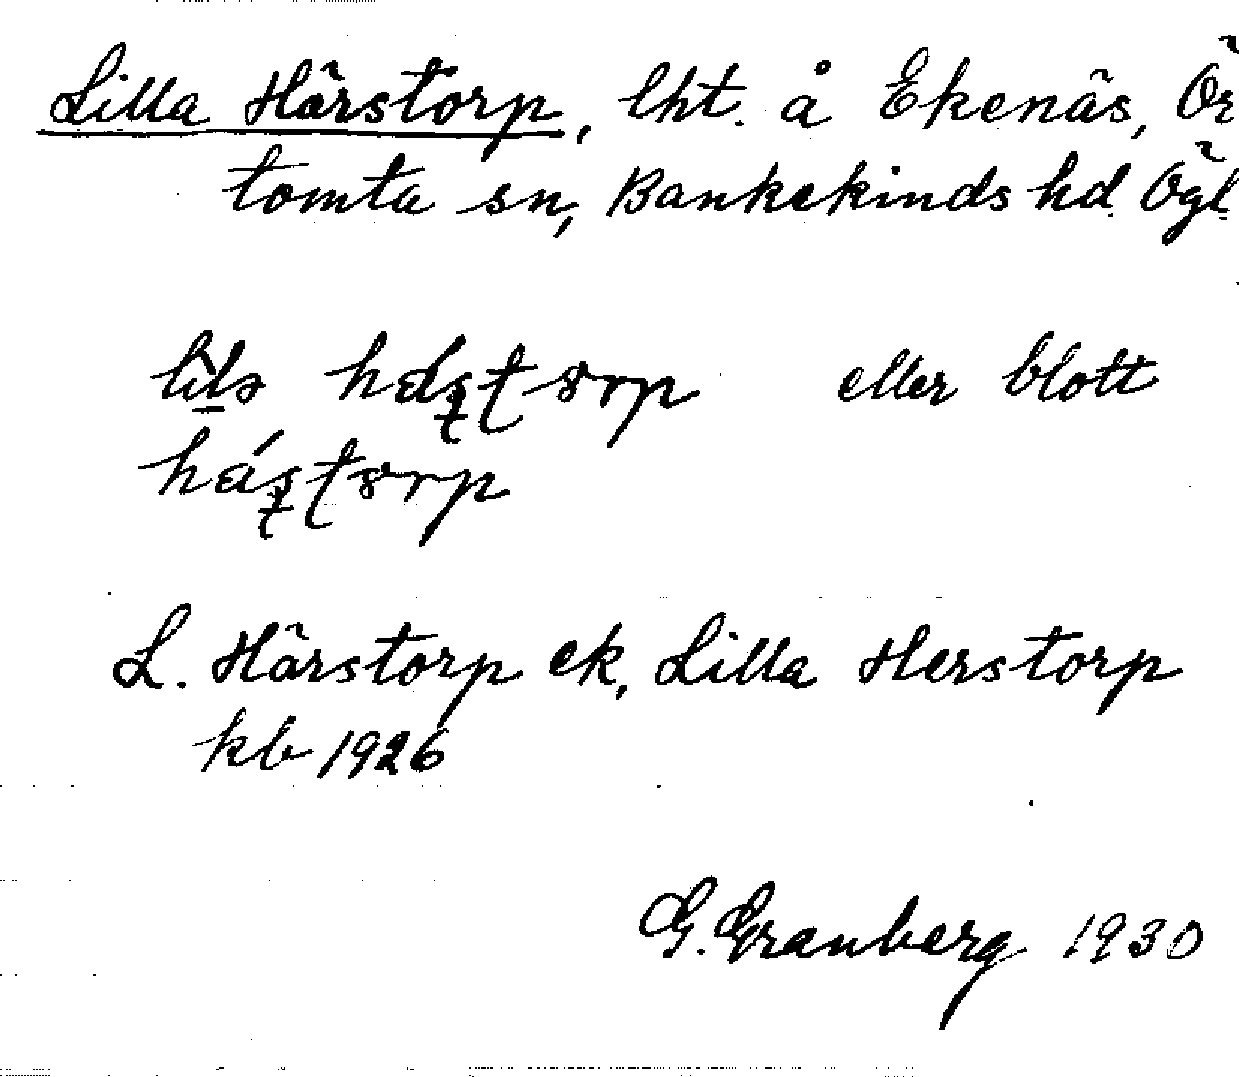 Lilla Härstorp, lht. å Ekenäs, Ör
tomta sn, Bankekinds hd. Ögl.
eller blott
L. Härstorp ek, Lilla Herstorp
kb 1926
G. Granberg 1930